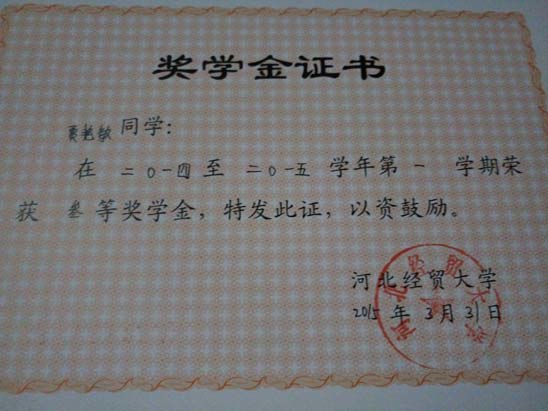 奖学金证书
贾艳敏同学：
在 二〇一四 至 二〇一五 学年第 一 学期荣
获 叁 等奖学金，特发此证，以资鼓励。
河北经贸大学
2015 年 3 月 31 日